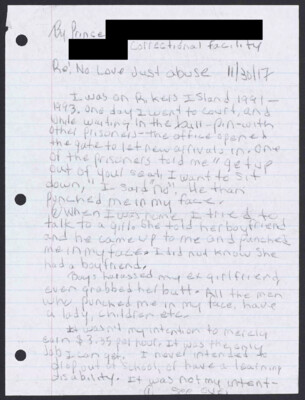 By Prince
Correctional facility
Re: No Love Just abuse 11/30/17
I was on Rikers Island 1991-
1993. One day I went to court, and
while waiting in the bull-pen-with
other prisoners-the office opened
the gate to let new arrivals in. One
of the prisoners told me "get up
out of your seat, I want to sit
down," I said "no". He than
punched me in my face.
When I was home, I tried to
talk to a girl. She told her boyfriend
and he came up to me and punched
me in my face. I did not know she
had a boyfriend.
Boys harassed my ex girlfriend
even grabbed her butt. All the men
who punched me in my face, have
a lady, children etc.
It wasn't my intention to merely
earn $3.35 per hour. It was the only
job I can get. I never intended to
drop out of school, or have a learning
disability. It was not my intent-
over